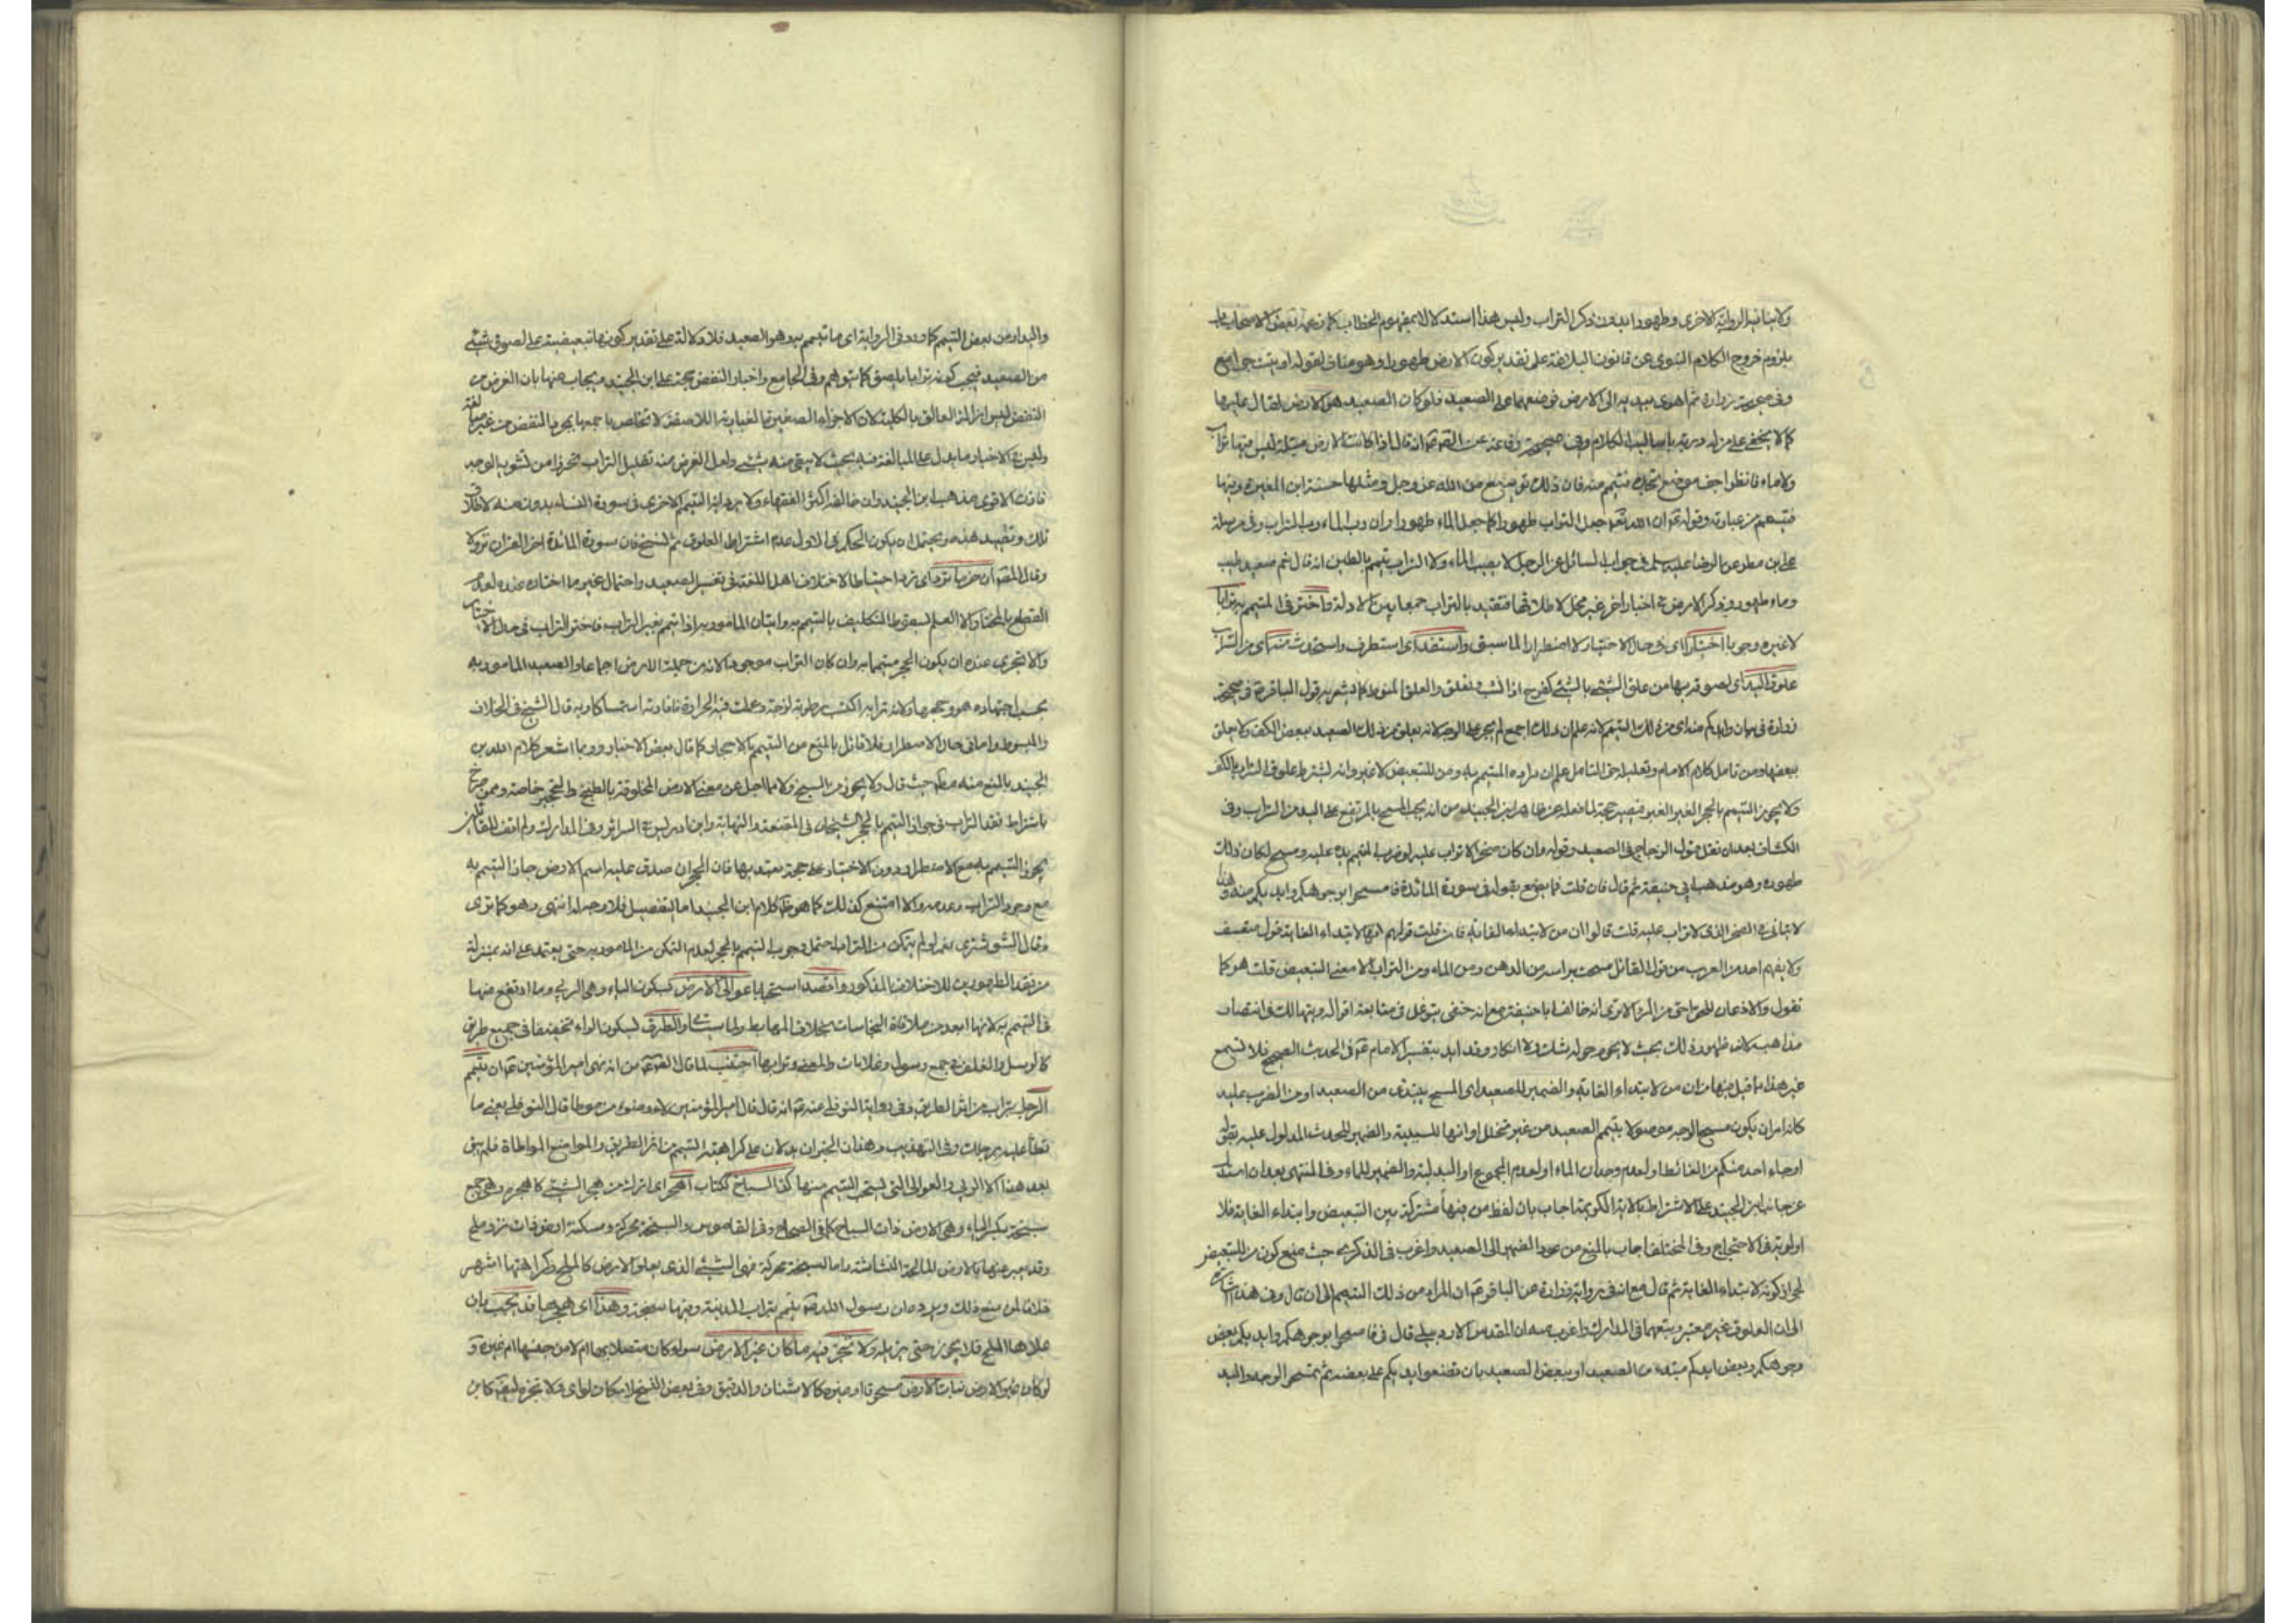 ولا ينافيه الرواية الاخرى وطهورا بدون ذكر التراب وليس هذا استدلالا بمفهوم الخطاب كما زعمه بعض الاصحاب بل
يلزم خروج الكلام النبوى عن قانون البلاغة على تقدير كون الارض طهورا وهو مناف لقوله اوتيت جوامع
وفى صحيحة زرارة ثم اهوى بيديه الى الارض فوضعهما على الصعيد فلو كان الصعيد هو الارض لقال عليها
كما لا يخفى على من له دربة باساليب الكلام وفى صحيحة رفاعة عن انه قال اذا كانت الارض مبتلة ليس فيها تراب
ولا ماء فانظر اجف موضع تجده فتيمم منه فان ذلك توسيع من الله عز وجل ومثلها حسنة ابن المغيرة ومنها
وقوله ان الله جعل التراب طهورا كما جعل الماء طهورا وان رب الماء رب التراب وفى مرسلة
على بن مطر عن الرضا عليه سلم فى جواب السائل عن الرجل لا يصيب الماء ولا التراب يتيمم بالطين انه قال نعم صعيد طيب
وماء طهور وذكر الارض فى اخبار اخر غير مخل لاطلاقها فتقيد بالتراب جمعا بين الادلة واختر فى المتيمم به ترابا
لا غيره وجوبا اختيارا اى فى حال الاختيار لا اضطرارا لما سبق واستفد اى استطرف واستحدث منه اى من التراب
علوق اليد اى لصوقه بها من علق الشئ بالشئ كفرح اذا نشب وتعلق والعلق المنوط كما يشعر به قول الباقر فى صحيحة
زرارة فى بيان وايديكم منه اى من ذلك التيمم لانه علم ان ذلك اجمع لم يجر على الوجه لانه يعلق من ذلك الصعيد ببعض الكف ولا يعلق
ببعضها ومن تامل كلام الامام وتعليله حق التامل علم ان مراده المتيمم به ومن للتبعيض لا غير وانه يشترط علوق التراب بالكف
ولا يجوز التيمم بالحجر الغير المغبر فيصير حجة لما نقل عن ظاهر ابن الجنيد من انه يجب المسح بالمرتفع على اليد من التراب وفى
الكشاف بعد ان نقل قول الزجاج فى الصعيد وقوله وان كان صخرا لا تراب عليه لو ضرب المتيمم يده عليه ومسح لكان ذلك
طهوره وهو مذهب ابى حنيفة ثم قال فان قلت فما يصنع بقوله فى سورة المائدة فامسحوا بوجوهكم وايديكم منه وهذا
لا يتاتى فى الصخر الذى لا تراب عليه قلت قالوا ان من لابتداء الغاية فان قلت قولهم انها لابتداء الغاية قول متعسف
ولا يفهم احد من العرب من قول القائل مسحت براسه من الدهن ومن الماء ومن التراب الا معنى التبعيض قلت هو كما
تقول والاذعان للحق احق من المراء الا ترى انه خالف ابا حنيفة مع انه حنفى يتوغل فى متابعة اقواله ويتهالك فى انتصار
مذاهبه لان ظهور ذلك بحيث لا يحوم حوله شك ولا انكار وقد ايد بتفسير الامام فى الحديث الصحيح فلا تسمع
غير هذا ما قيل منها من ان من لابتداء الغاية والضمير للصعيد اى المسح يبتدى من الصعيد او من الضرب عليه
او جاء احد منكم من الغائط او لعدم وجدان الماء او لعدم المجموع او البدلية والضمير للماء وفى المنتهى بعد ان استدل
عن جانب ابن الجنيد على الاشتراط بالاية الكريمة اجاب بان لفظ من فيها مشتركة بين التبعيض وابتداء الغاية فلا
اولوية فى الاحتجاج وفى المختلف اجاب بالمنع من عود الضمير الى الصعيد واغرب فى الذكرى حيث منع كون من للتبعيض
لجواز كونه لابتداء الغاية ثم قال مع ان فى رواية زرارة عن الباقر ان المراد من ذلك التيمم الى ان قال وفى هذا اشارة
الى ان العلوق غير معتبر وتبعهما فى المدارك واغرب منه ان المقدس الاردبيلى قال فى فامسحوا بوجوهكم وايديكم ببعض
وجوهكم وبعض ايديكم مبتدء من الصعيد او ببعض الصعيد بان تضعوا ايديكم على بعضه ثم تمسحوا الوجه واليد
والمراد من بعض التيمم كما ورد فى الرواية اى ما تيمم به وهو الصعيد فلا دلالة على تقدير كونها تبعيضية على لصوق شئ
من الصعيد فيجب كونه ترابا يلصق كما يتوهم وفى الجامع واخبار النفض حجة على ابن الجنيد ويجاب عنها بان الغرض من
النفض ليس ازالة العالق بالكلية لان الاجزاء الصغيرة الغبارية اللاصقة لا تتخلص باجمعها بمجرد النفض من غير مبالغة
وليس فى الاخبار ما يدل على المبالغة فيه بحيث لا يبقى منه شئ ولعل الغرض منه تقليل التراب تحرزا من تشويه الوجه
فاذن الاقوى مذهب ابن الجنيد وان خالفه اكثر الفقهاء ولا يرد اية التيمم الاخرى فى سورة النساء بدون منه لاطلاق
تلك وتقييد هذه ويحتمل ان يكون الحكم فى الاول عدم اشتراط العلوق ثم نسخ فان سورة المائدة اخر القران نزولا
القطع بالمختار والا العلم بسقوط التكليف بالتيمم به واتيان المامور به اذا تيمم بغير التراب فاختر التراب فى حال الاختيار
والا فيجزى عنده ان يكون الحجر متيمما به وان كان التراب موجودا لانه من جملة الارض اجماعا والصعيد المامور به
بحسب اجتهاده هو وجهها ولانه تراب اكتسب رطوبة لزجة وعملت فيه الحرارة فافادته استمساكا وبه قال الشيخ فى الخلاف
والمبسوط واما فى حال الاضطرار فلا قائل بالمنع من التيمم بالاحجار كما قال بعض الاخيار وربما اشعر كلام ابن
الجنيد بالمنع منه مطلقا حيث قال ولا يجوز من السبخ ولا مما احيل عن معنى الارض المخلوقة بالطبخ والتحجير خاصة وممن صرح
باشتراط فقد التراب فى جواز التيمم بالحجر الشيخان فى المقنعة والنهاية وابن ادريس فى السرائر وفى المدارك ولم اقف للقائلين
بجواز التيمم به مع الاضطرار دون الاختيار على حجة يعتد بها فان الحجر ان صدق عليه اسم الارض جاز التيمم به
مع وجود التراب وعدمه والا امتنع كذلك كما هو ظاهر كلام ابن الجنيد اما التفصيل فلا وجه له انتهى وهو كما ترى
من فقد الطهورين للاختلاف المذكور واقصد استحبابا عوالى الارض بسكون الياء وهى الربى وما ارتفع منها
فى التيمم به لانها ابعد من ملاقاة النجاسات بخلاف المهابط ولما سيتلى والطرق بسكون الراء تخفيفا فى جميع طريق
كالرسل والغلف فى جمع رسول وغلاف اجتنب لما قال من انه نهى امير المؤمنين ان يتيمم
الرجل بتراب من اثر الطريق وفى رواية النوفلى عنه انه قال قال امير المؤمنين لا وضوء من موطأ قال النوفلى يعنى ما
تطأ عليه برجلك وفى التهذيب وهذان الخبران يدلان على كراهية التيمم من اثر الطريق والمواضع الموطاة فلم يبق
بعد هذا الا الربى والعوالى التى يستحب التيمم منها كذا السباخ ككتاب اهجر اى اترك من هجر الشئ كاهجره وهى جمع
سبخة بكسر الباء وهى الارض ذات السباخ كما فى الصحاح وفى القاموس والسبخة محركة ومسكنة ارض ذات نز وملح
وقد يعبر عنها بالارض المالحة النشاشة واما السبخة محركة فهى الشئ الذى يعلو الارض كالملح وكراهتها اشهر
خلافا لمن منع ذلك ويرده ان رسول الله تيمم بتراب المدينة وفيها سبخة وهذا اى هجرها قد يجب بان
علاها الملح فلا يجوز حتى يزيله ولا تجز فيه ما كان غير الارض سواء كان متصلا بها ام لا من جنسها ام غيره و
لو كان غير الارض نبات الارض مسحوقا او غيره كالاشنان والدقيق وفى بعض النسخ